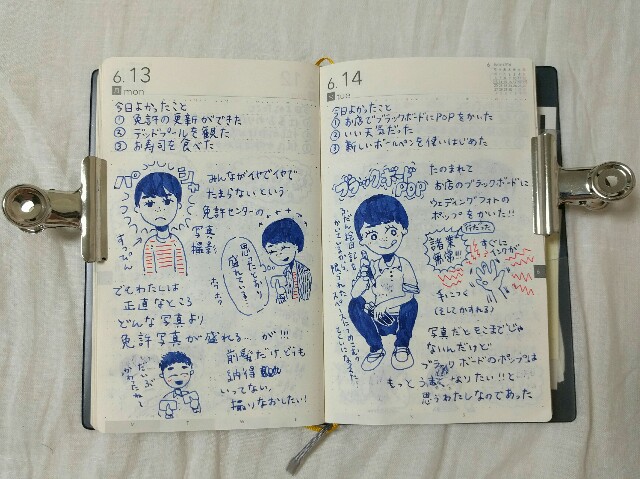 6.13
月 mon
今日よかったこと
① 免許の更新ができた
② デッドプールを観た
③ お寿司を食べた
パシャ
みんながイヤでイヤで
たまらないという
免許センターの、
写真
撮影
すっぴん
思ったとおり
盛れている…
でもわたしは
正直なところ
どんな写真より
免許写真が盛れる…が!!!
前髪だけ、どうも
納得
いってない。
撮りなおしたい!
6.14
火 tue
今日よかったこと
① お店でブラックボードにPOPをかいた
② いい天気だった
③ 新しいボールペンを使いはじめた
ブラックボードPOP
たのまれて
お店のブラックボードに
ウェディングフォトの
ポップをかいた!!
諸業
無常
行だった
すぐに
インクが
手につく
(そしてかすれる)
写真だとそこまでじゃ
ないんだけど
ブラックボードのポップは
もっとうまくなりたい!!と
思うわたしなのであった